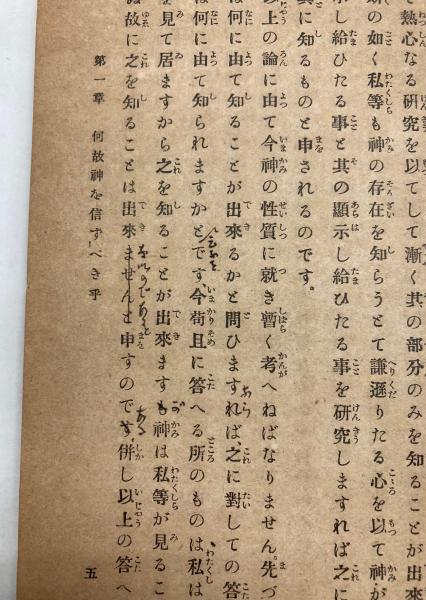 て熱心なる研究を以てして漸く其の部分のみを知ることが出來
の如く私等も神の存在を知らうとて謙遜りたる心を以て神が
示し給ひたる事と其の顯示し給ひたる事を研究しますれば之に
に知るものと申されるのです。
以上の論に由て今神の性質に就き暫く考へねばなりません。先づ
は何に由て知ることが出來るかと問ひますれば、之に對しての答
は何に由て知られますかとです、今苟且に答へる所のものは私は
を見て居ますから之を知ることが出來ますも神は私等が見るこ
故に之を知ることは出來ませんと申すのです、併し以上の答へ
第一章 何故神を信ずべき乎
五